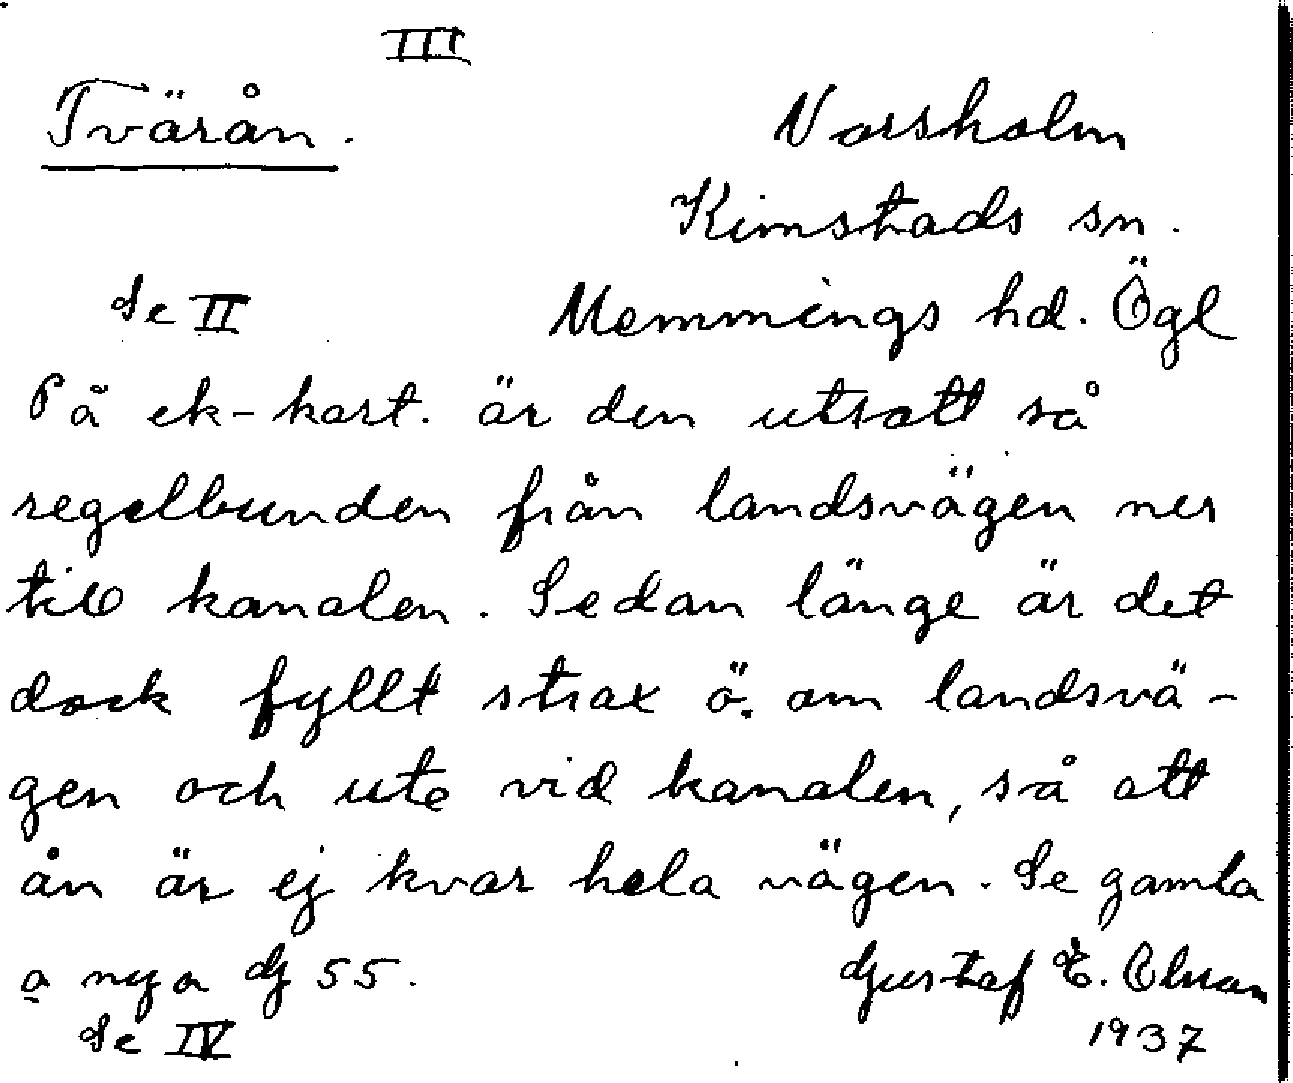 III
Tvärån.
Norsholm
Kimstads sn.
Se II
Memmings hd. Ögl
På ek-kart. är den utsatt så
regelbunden från landsvägen ner
till kanalen. Sedan länge är det
dock fyllt strax ö. om landsvä-
gen och ute vid kanalen, så att
ån är ej kvar hela vägen. Se gamla
o nya G 55.
Gustaf E. Olsson
Se IV
1937